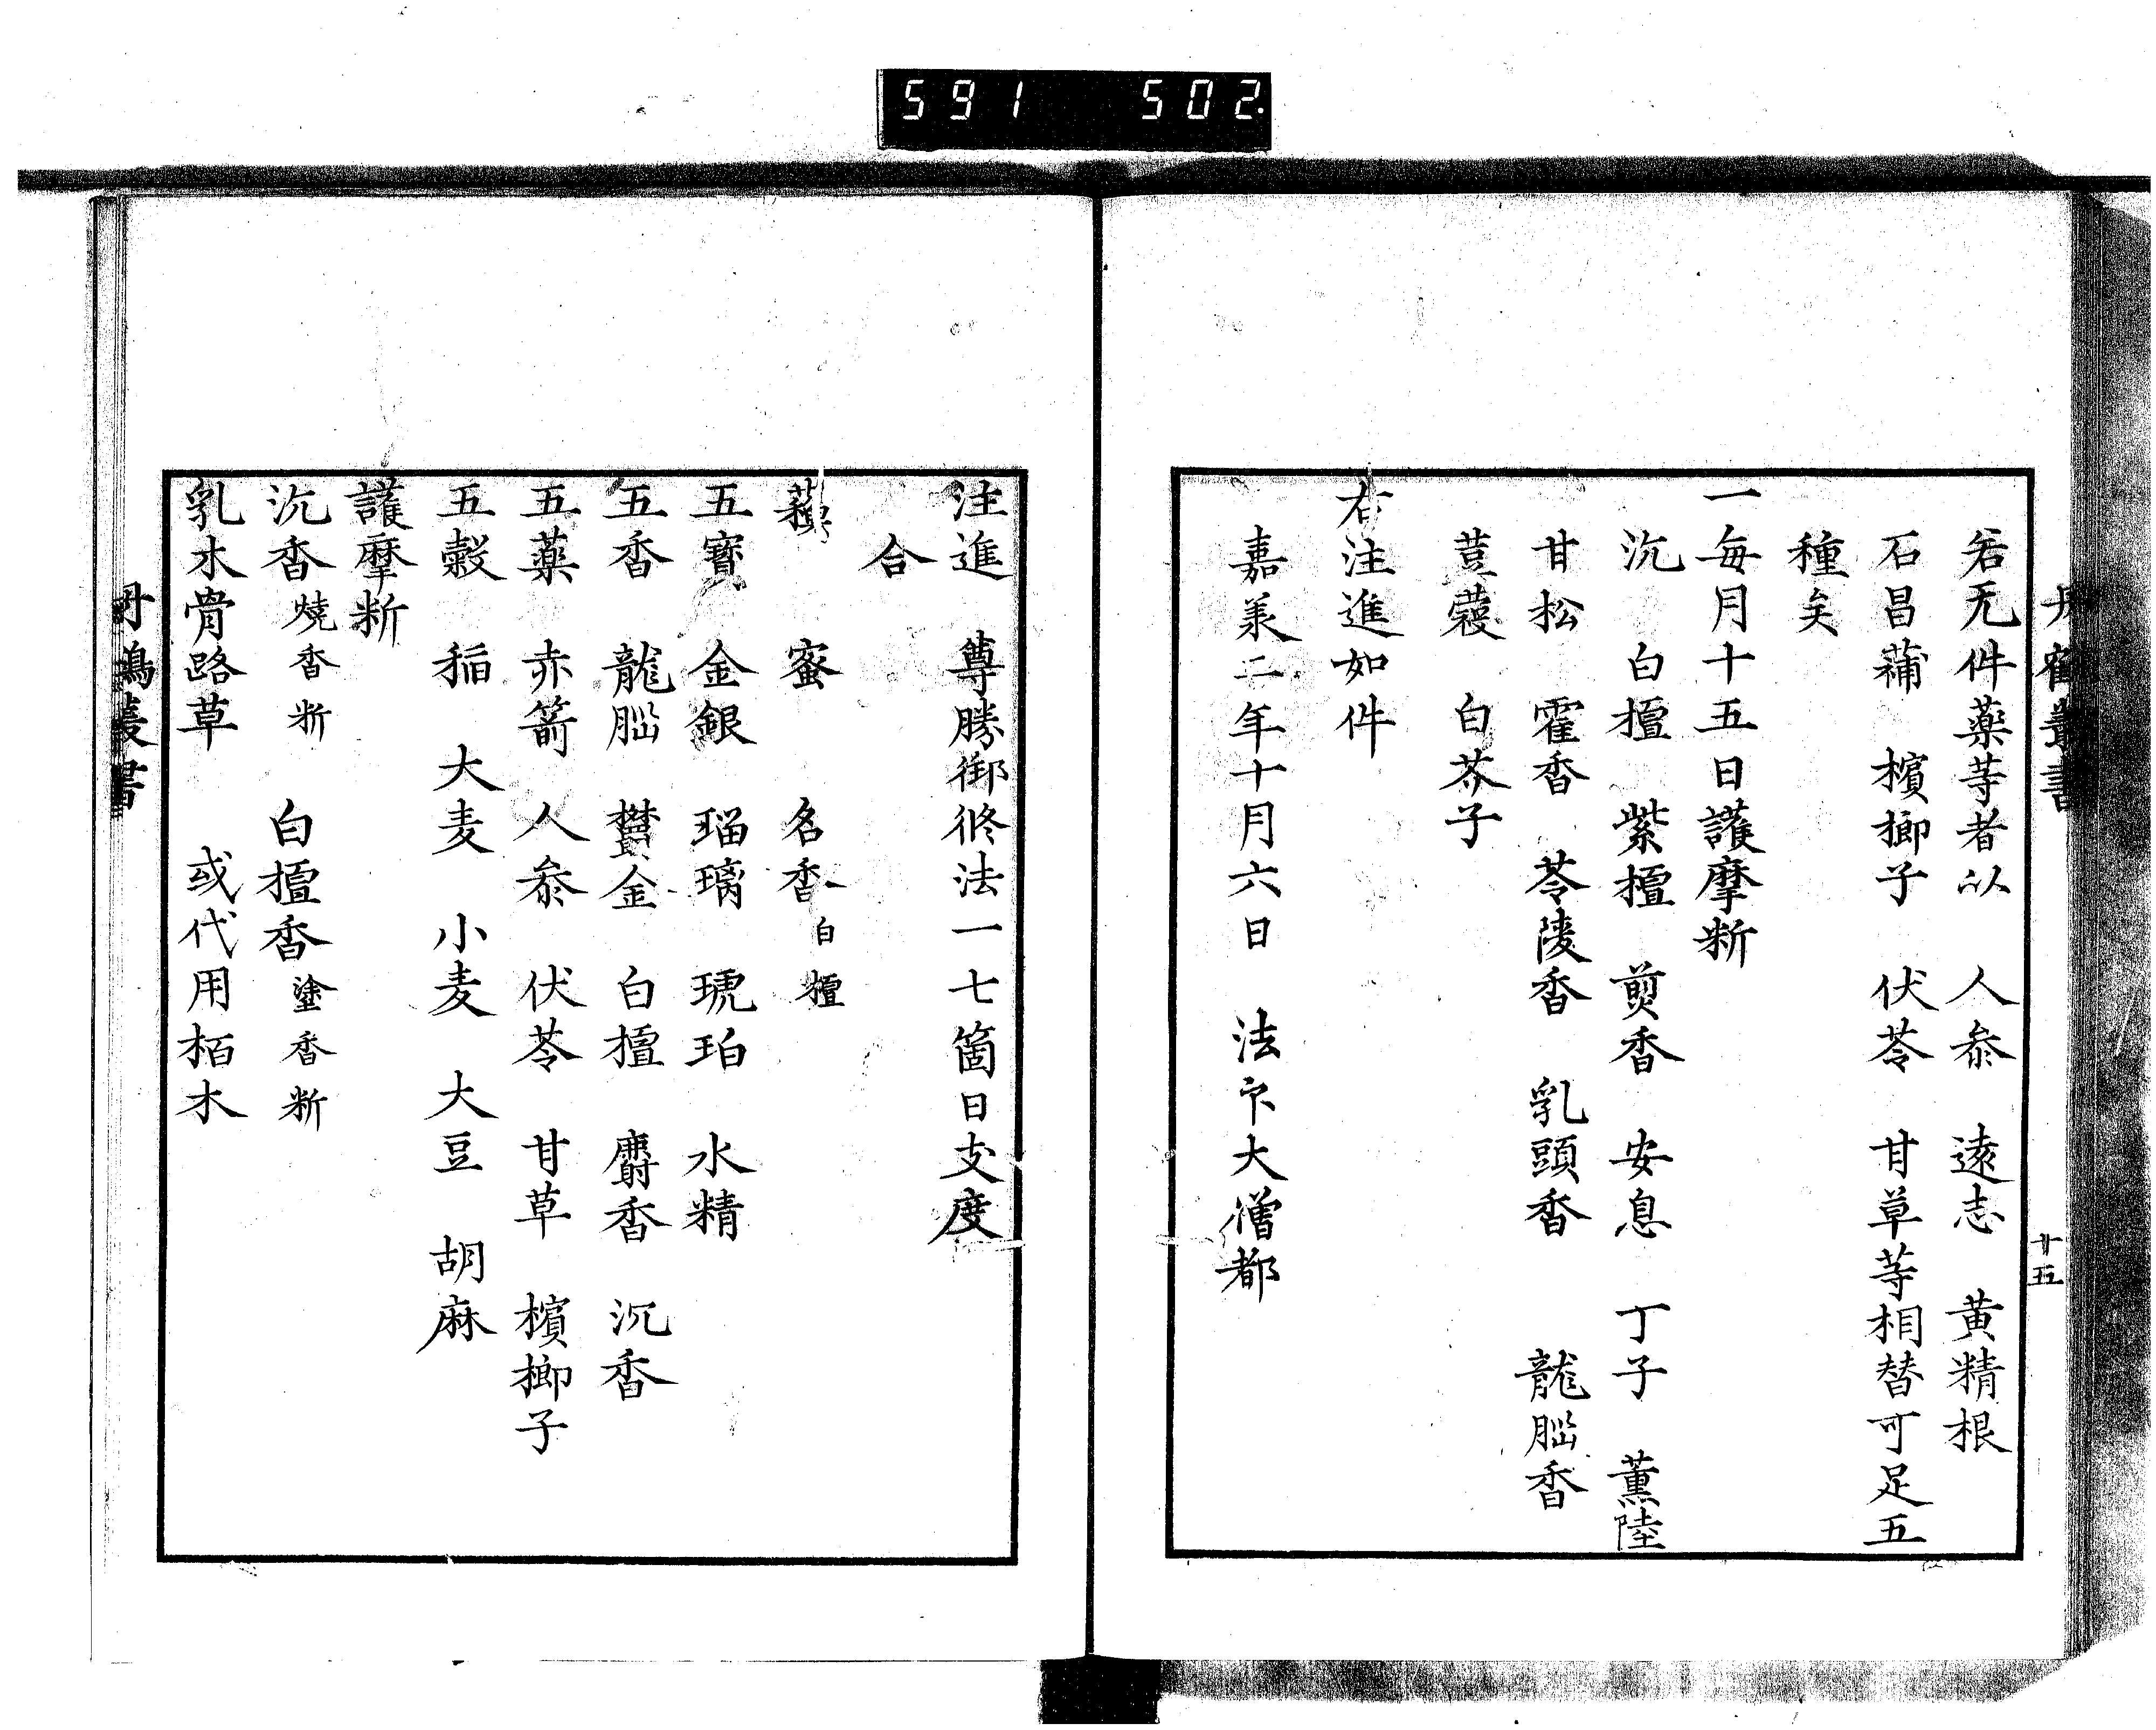 591 502
丹鶴叢書
廿五
若无件薬等者以 人参 遠志 黄精根
石昌蒲 檳榔子 伏苓 甘草等相替可足五
種矣
一毎月十五日護摩断
沉 白檀 紫檀 煎香 安息 丁子 薫陸
甘松 霍香 苓陵香 乳頭香 龍脳香
荳蔲 白芥子
右注進如件
嘉承二年十月六日 法印大僧都
注進 尊勝御修法一七箇日支度
合
蘓 蜜 名香 白檀
五寳 金銀 瑠璃 琥珀 水精
五香 龍脳 欝金 白檀 麝香 沉香
五薬 赤箭 人参 伏苓 甘草 檳榔子
五穀 稲 大麦 小麦 大豆 胡麻
護摩断
沉香 焼香断 白檀香 塗香断
乳木骨路草 或代用栢木
丹鶴叢書